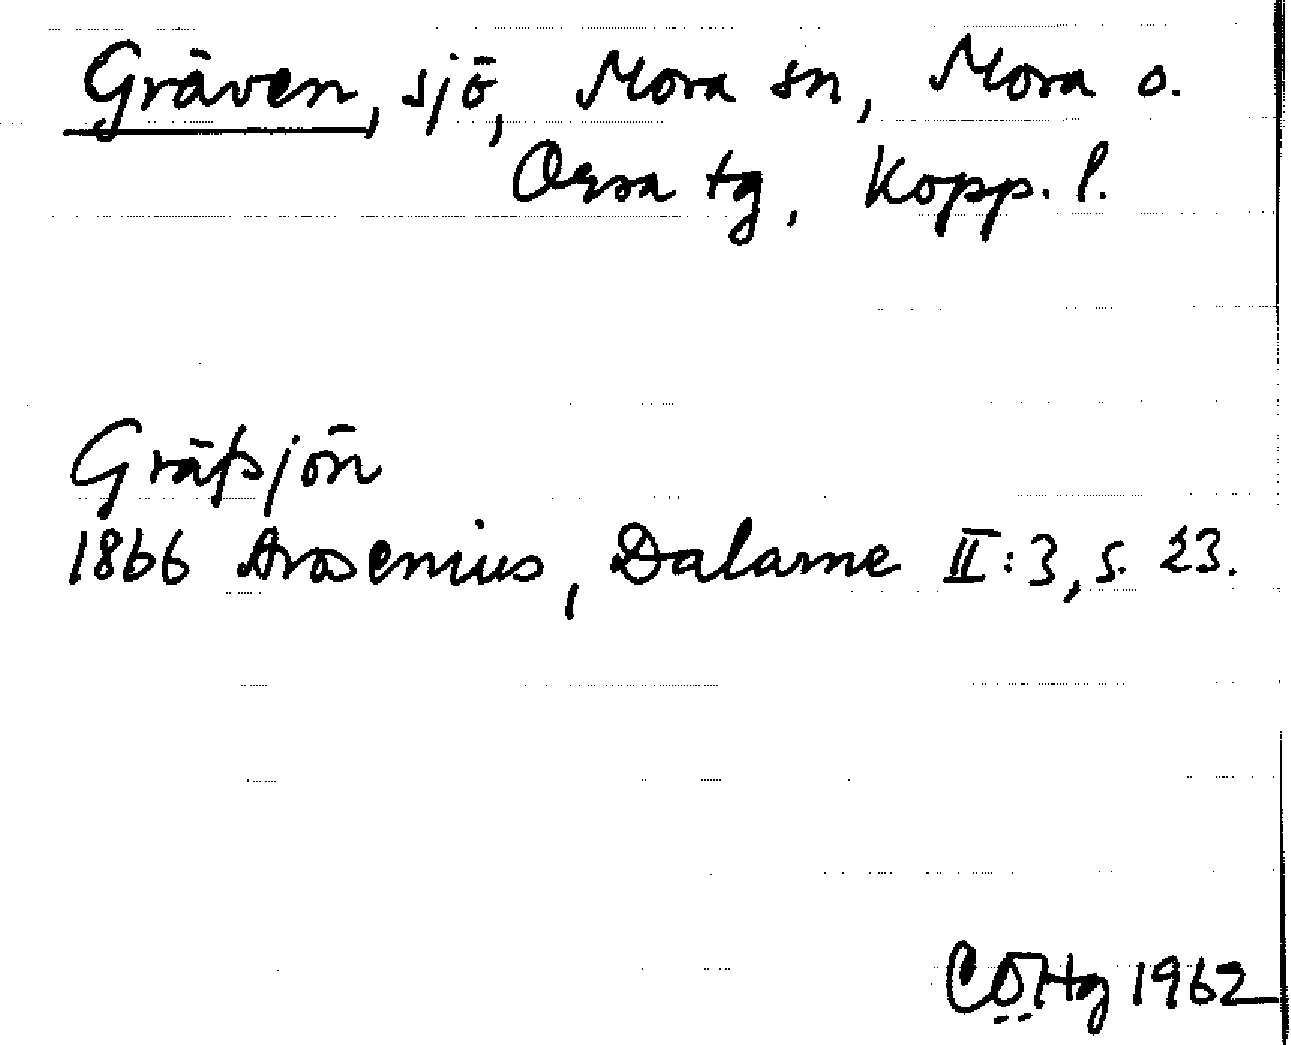 Gräven, sjö, Mora sn, Mora o.
Orsa tg, Kopp. l.
Gräfsjön
1866 Arosenius, Dalarne II:3, s. 23.
CÖHg 1962